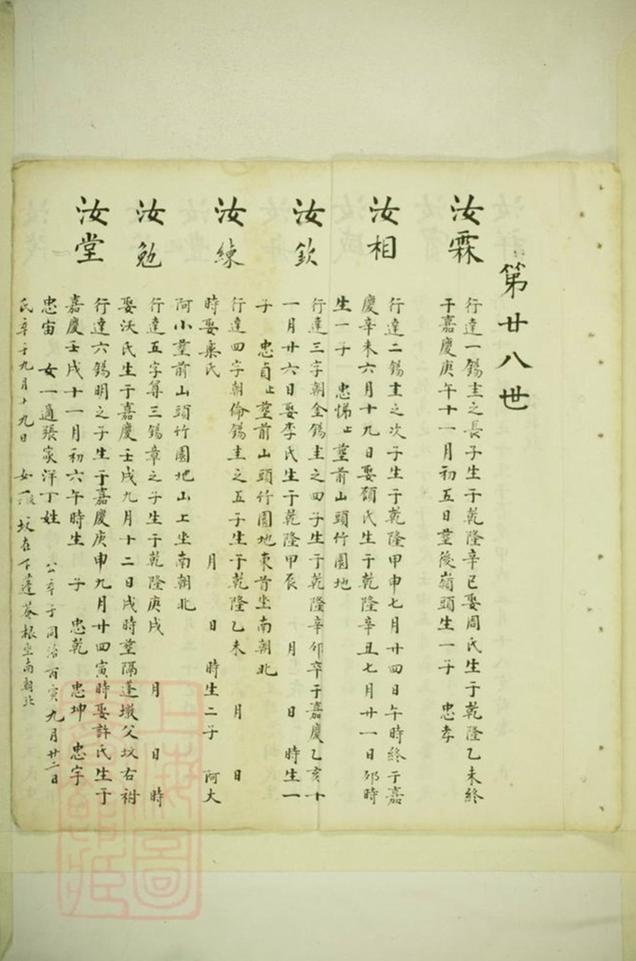 第廿八世
汝霖
行達一錫圭之長子生于乾隆辛巳娶周氏生于乾隆乙未終
于嘉慶庚午十一月初五日塟後嶺頭生一子 忠孝
汝相
行達二錫圭之次子生于乾隆甲申七月廿四日午時終于嘉
慶辛未六月十九日娶顧氏生于乾隆辛丑七月廿一日卯時
生一子 忠悌 塟前山頭竹園地
汝欽
行達三字朝金錫圭之四子生于乾隆辛卯卒于嘉慶乙亥十
一月廿六日娶李氏生于乾隆甲辰 月 日 時生一
子 忠貞 塟前山頭竹園地東首坐南朝北
汝練
行達四字朝倫錫圭之五子生于乾隆乙未 月 日
時娶乘氏 月 日 時生二子 阿大
阿小塟前山頭竹園地山上坐南朝北
汝勉
行達五字尊三錫章之子生于乾隆庚戌 月 日 時
娶沃氏生于嘉慶壬戌九月十二日戌時塟隔蓬墩父坟右祔
汝堂
行達六錫明之子生于嘉慶庚申九月廿四寅時娶許氏生于
嘉慶壬戌十一月初六午時生 子 忠乾 忠坤 忠宇
忠宙 女一適張家洋丁姓 公卒于同治丙寅九月廿二日
氏卒于九月十九日 坟在下蓬 根坐南朝北
上海圖